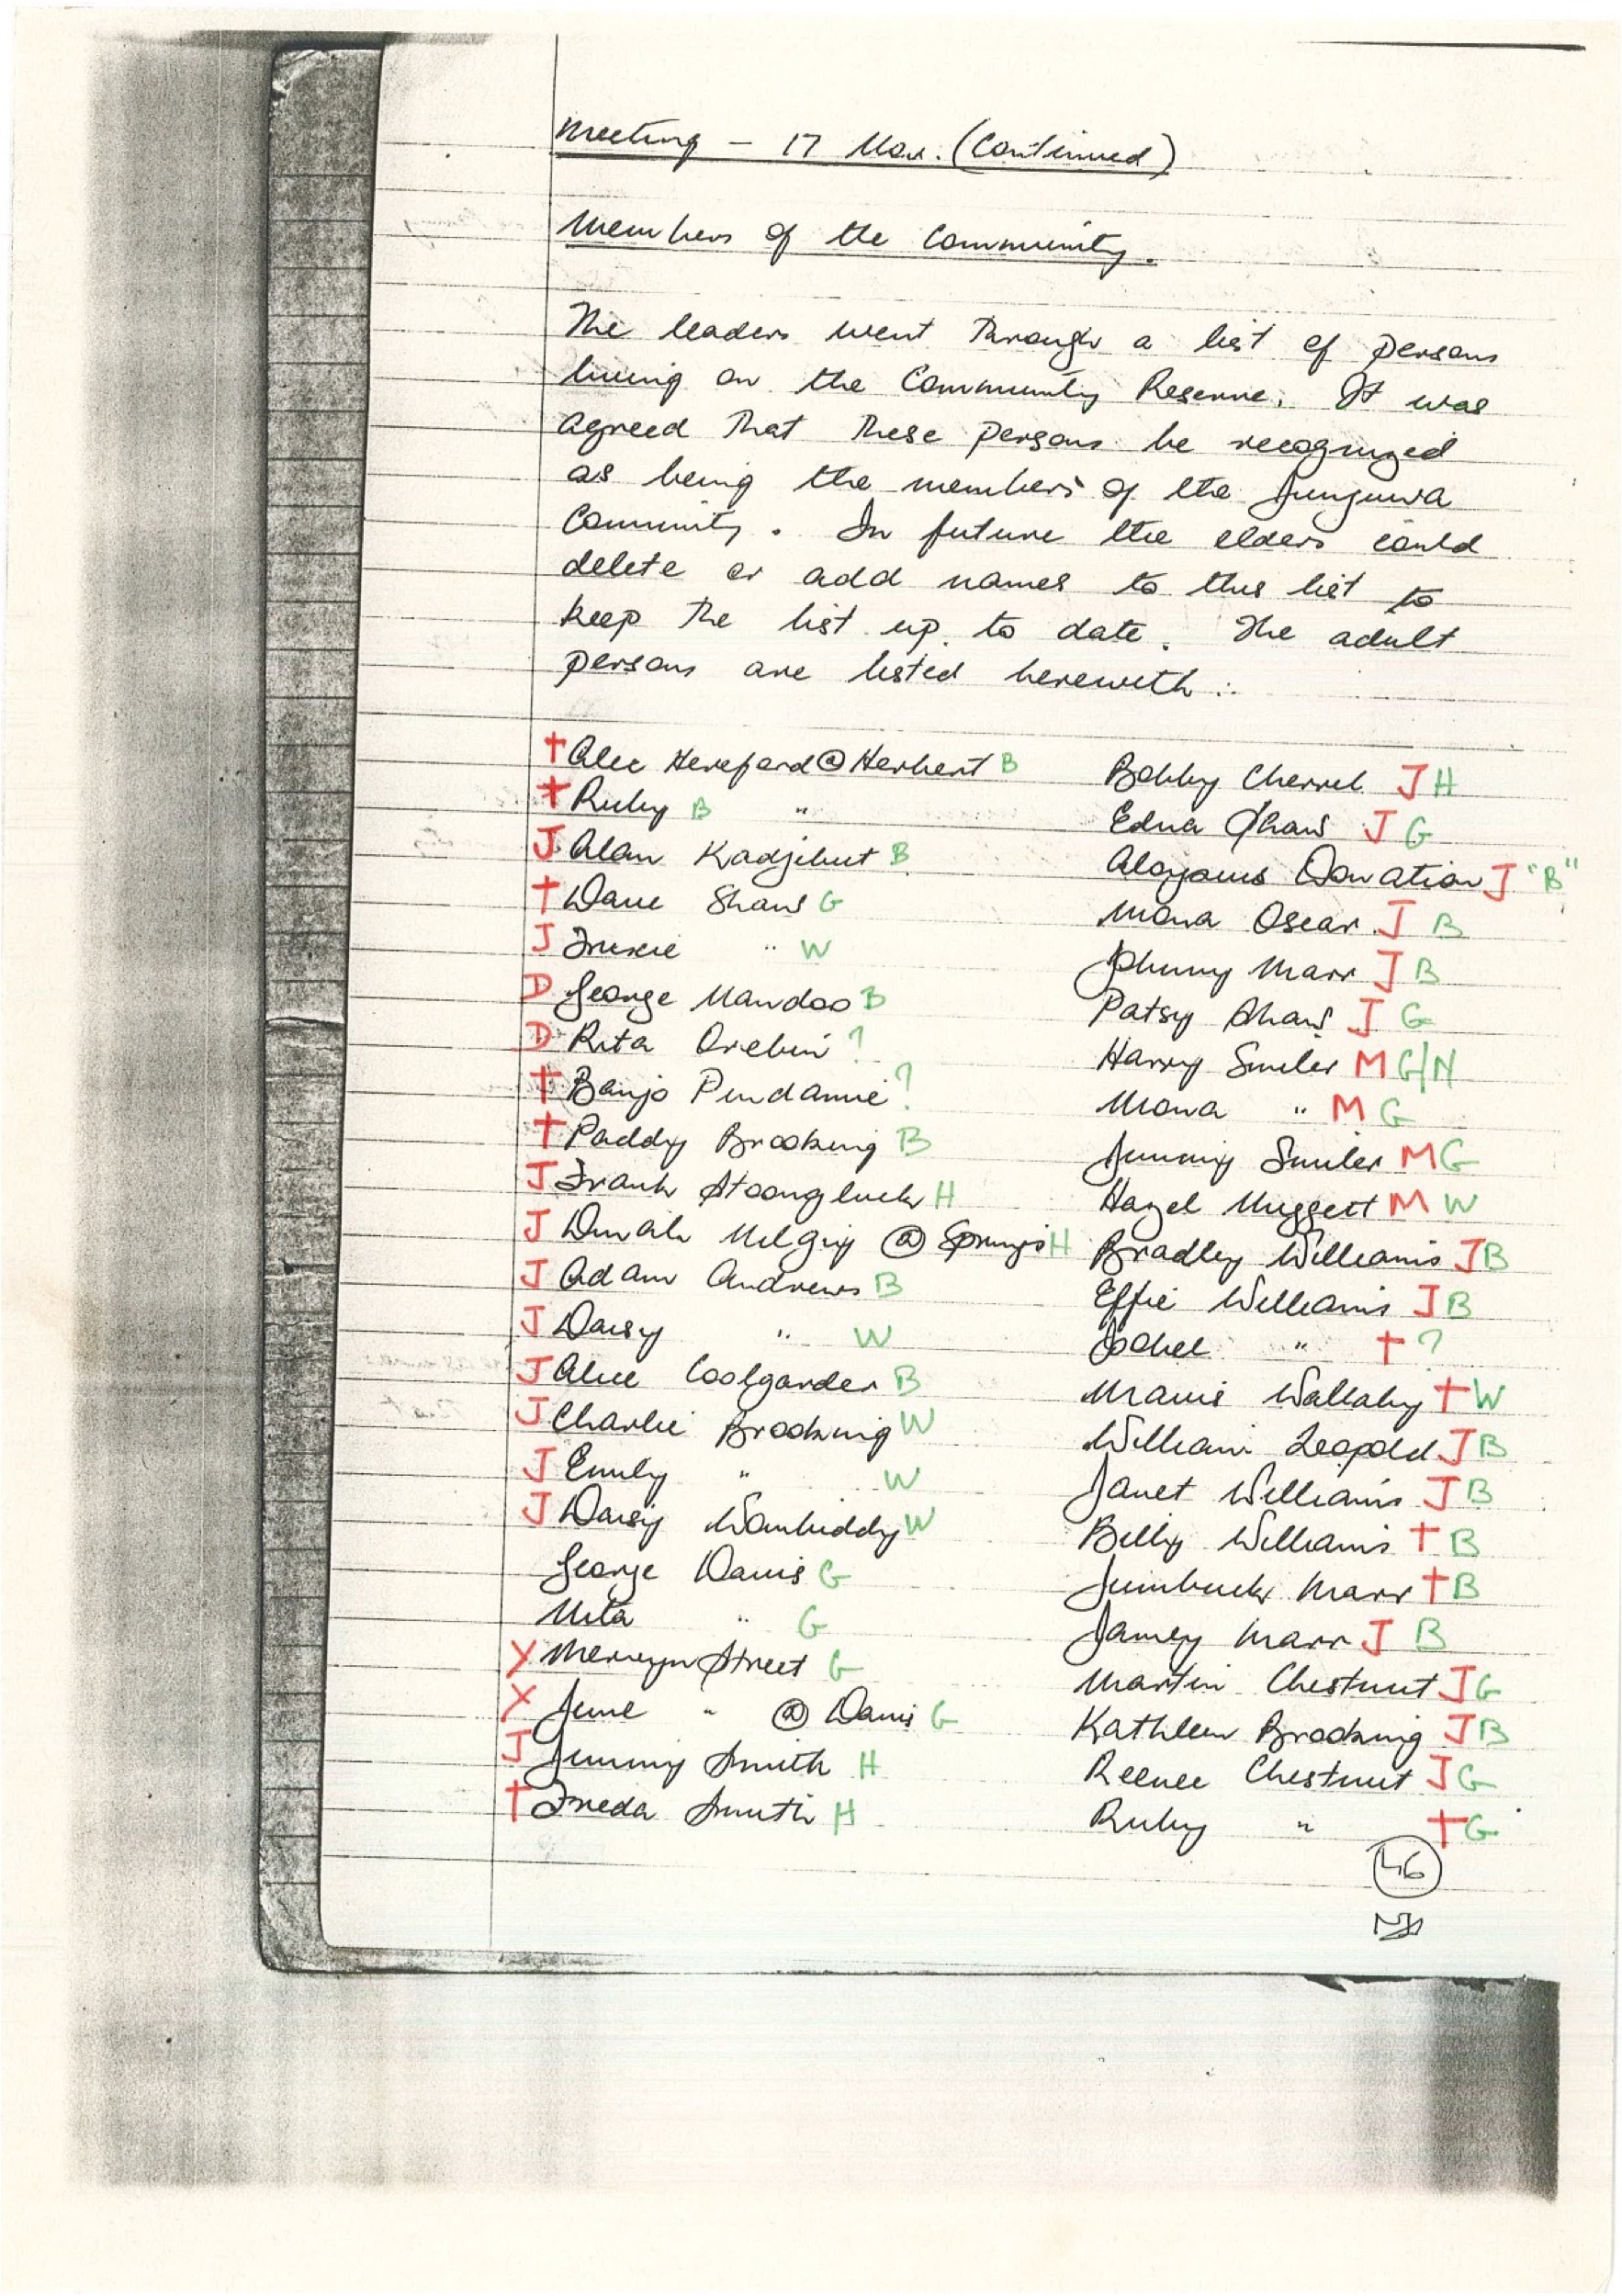 Meeting - 17 Nov. (Continued)
Members of the Community.
The leaders went through a list of persons
living on the Community Reserve. It was
agreed that these persons be recognized
as being the members of the Junjuwa
Community. In future the elders could
delete or add names to this list to
keep the list up to date. The adult
persons are listed herewith :-
† Alec Hereford @ Herbert B
† Ruby B "
J Alan Kadjibut B
† Dave Shaws G
J Trixie " W
D George Nandoo B
D Rita Orebin ?
† Banjo Pindannie ?
† Paddy Brooking B
J Frank Stoongluck H
J Milgin @ Springs H
J Adam Andrews B
J Daisy " W
J Alice Coolgarder B
J Charlie Brooking W
J Emily " W
J Daisy Wambiddy W
George Davis G
Nita " G
X Mervyn Street G
X June " @ Davis G
J Jimmy Smith H
† Freda Smith H
Bobby Cherrel J H
Edna Shaws J G
Aloysous Donation J "B"
Mona Oscar J B
Johnny Marr J B
Patsy Shaws J G
Harry Smiler M G/N
Mona " M G
Jimmy Smiler M G
Hazel Nuggett M W
Bradley Williams J B
Effie Williams J B
" † ?
Mavis Wallaby † W
William Leopold J B
Janet Williams J B
Billy Williams † B
Jumbuck Marr † B
Jamey Marr J B
Martin Chestnut J G
Kathleen Brooking J B
Reenee Chestnut J G
Ruby " † G
46